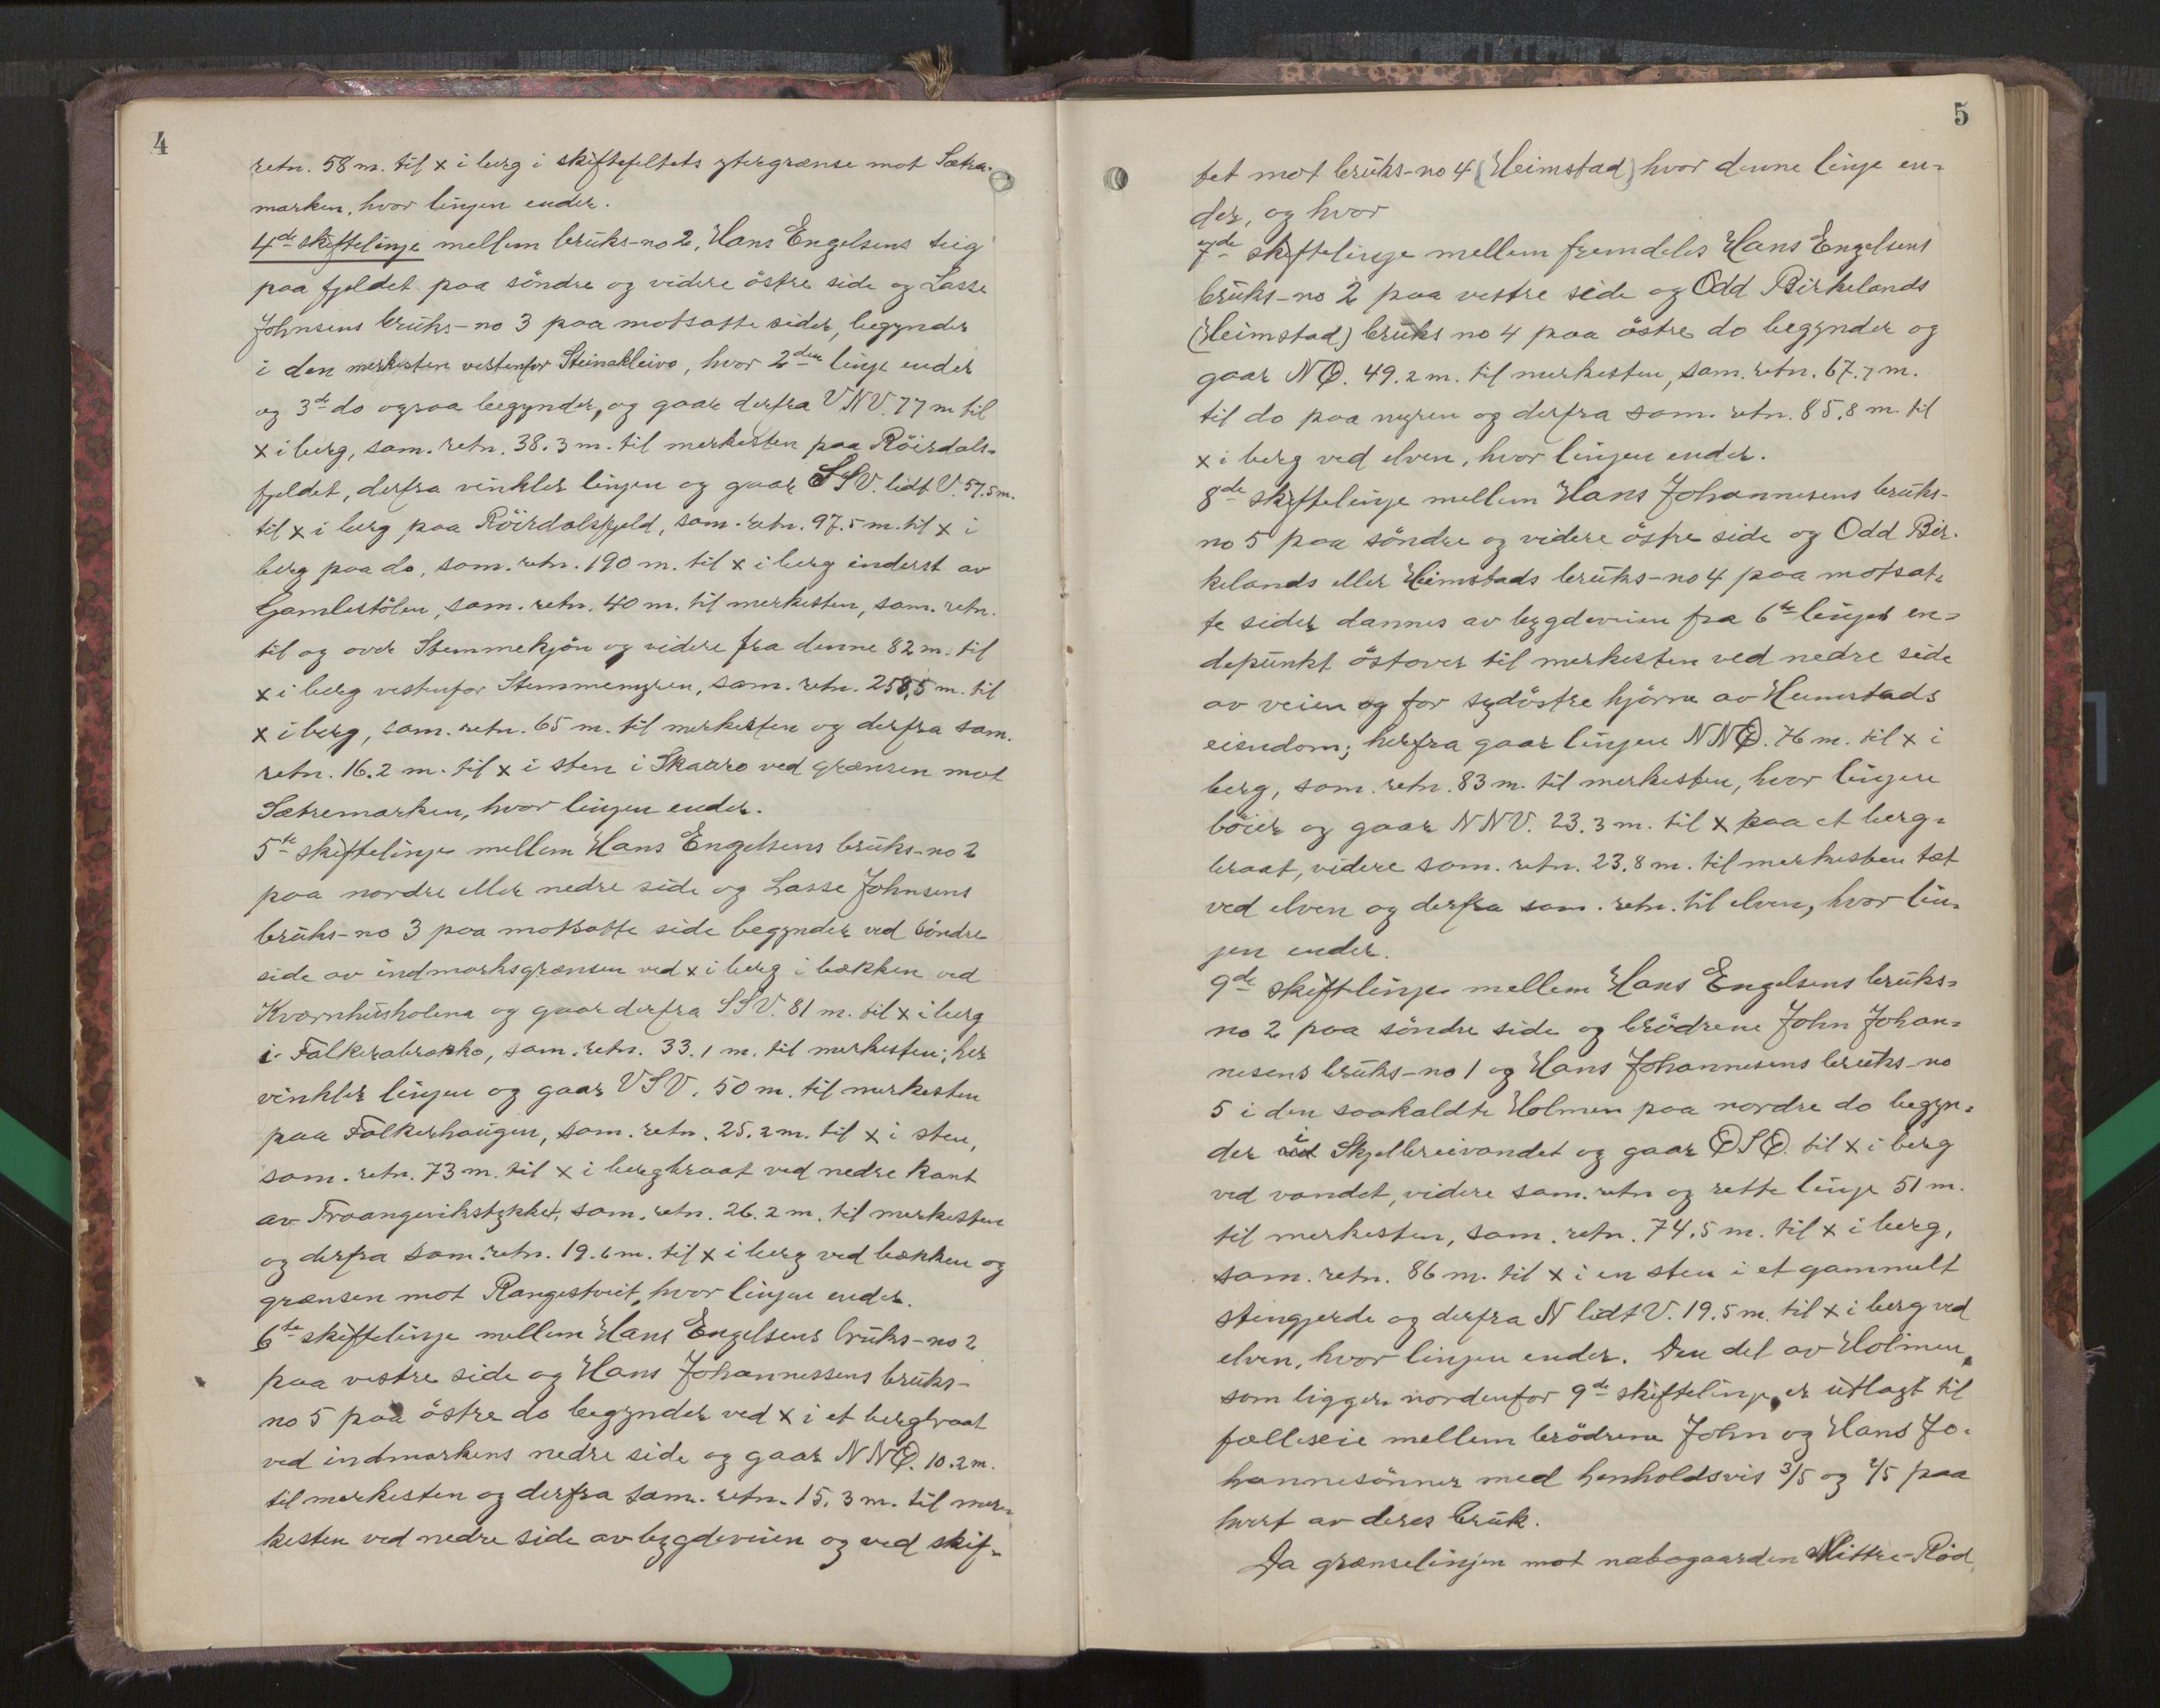 4
retn. 58 m. til x i berg i skiftefeltets ytergrænse mot Sætra-
marken, hvor linjen ender.
4de skiftelinje mellem bruks-no 2, Hans Engelsens teig
paa fjeldet paa söndre og videre östre side og Lasse
Johnsens bruks-no 3 paa motsatte sider, begynder
i den merkesten vestenfor Steinakleivo, hvor 2den linje ender
og 3de do ogsaa begynder, og gaar derfra VNV. 77 m til
x i berg, sam. retn. 38.3 m. til merkesten paa Röirdals-
fjeldet, derfra vinkler linjen og gaar SSV. lidt V. 57.5 m.
til x i berg paa Röirdalsfjeld, sam. retn. 97.5 m. til x i
berg paa do, sam. retn. 190 m. til x i berg inderst av
Gamlestölen, sam. retn. 40 m. til merkesten, sam. retn.
til og over Stemmekjön og videre fra denne 82 m. til
x i berg vestenfor Stemmemyren, sam. retn. 258,5 m. til
x i berg, sam. retn. 65 m. til merkesten og derfra sam.
retn. 16.2 m. til x i sten i Skaaro ved grænsen mot
Sætremarken, hvor linjen ender.
5te skiftelinje mellem Hans Engelsens bruks-no 2
paa nordre eller nedre side og Lasse Johnsens
bruks-no 3 paa motsatte side begynder ved söndre
side av indmarksgrænsen ved x i berg i bækken ved
Kvornhusholena og gaar derfra SSV. 81 m. til x i berg
i Falkerabrakko, sam. retn. 33.1 m. til merkesten; her
vinkler linjen og gaar VSV. 50 m. til merkesten
paa Falkerhaugen, sam. retn. 25.2 m. til x i sten,
sam. retn. 73 m. til x i bergbraat ved nedre kant
av Traangevikstykket, sam. retn. 26.2 m. til merkesten
og derfra sam. retn. 19.6 m. til x i berg ved bækken og
grænsen mot Rangestveit, hvor linjen ender.
6te skiftelinje mellem Hans Engelsens bruks-no 2
paa vestre side og Hans Johannessens bruks-
no 5 paa östre do begynder ved x i et bergbraat
ved indmarkens nedre side og gaar NNØ. 10.2 m.
til merkesten og derfra sam. retn. 15.3 m. til mer-
kesten ved nedre side av bygdeveien og ved skif-
5
tet mot bruks-no 4 (Heimstad) hvor denne linje en-
der, og hvor
7de skiftelinje mellem fremdeles Hans Engelsens
bruks-no 2 paa vestre side og Odd Birkelands
(Heimstad) bruks no 4 paa östre do begynder og
gaar NØ. 49.2 m. til merkesten, sam. retn. 67.7 m.
til do paa myren og derfra sam. retn. 85.8 m. til
x i berg ved elven, hvor linjen ender.
8de skiftelinje mellem Hans Johannesens bruks-
no 5 paa söndre og videre östre side og Odd Bir-
kelands eller Heimstads bruks-no 4 paa motsat-
te sider dannes av bygdeveien fra 6te linjes en-
depunkt östover til merkesten ved nedre side
av veien og for sydöstre hjörne av Heimstads
eiendom; herfra gaar linjen NNØ. 76 m. til x i
berg, sam. retn. 83 m. til merkesten, hvor linjen
böier og gaar NNV. 23.3 m. til x paa et berg-
braat, videre sam. retn. 23.8 m. til merkesten tæt
ved elven og derfra sam. retn. til elven, hvor lin-
jen ender.
9de skiftlinje mellem Hans Engelsens bruks-
no 2 paa söndre side og brödrene John Johan-
nesens bruks-no 1 og Hans Johannesens bruks-no
5 i den saakaldte Holmen paa nordre do begyn-
der i Skjelbreivandet og gaar ØSØ. til x i berg
ved vandet, videre sam. retn og rette linje 51 m.
til merkesten, sam. retn. 74.5 m. til x i berg,
sam. retn. 86 m. til x i en sten i et gammelt
stengjerde og derfra N lidt V. 19.5 m. til x i berg ved
elven, hvor linjen ender. Den del av Holmen,
som ligger nordenfor 9de skiftelinje, er utlagt til
fælleseie mellem brödrene John og Hans Jo-
hannesönner med henholdsvis 3/5 og 2/5 paa
hvert av deres bruk.
Da grænselinjen mot nabogaarden Mittre-Röd